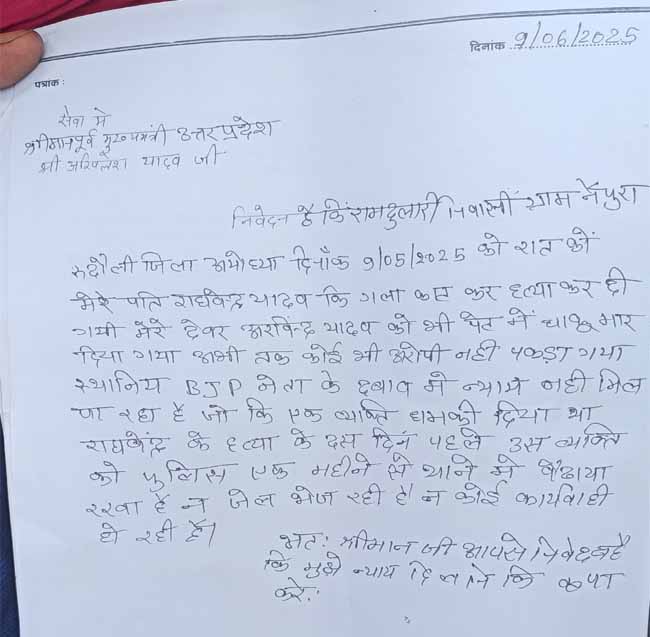 दिनांक 9/06/2025
पत्रांक :
सेवा मे
श्रीमान पूर्व मुख्यमंत्री उत्तर प्रदेश
श्री अखिलेश यादव जी
निवेदन है कि रामदुलारी निवासी ग्राम नैपुरा
रुदौली जिला अयोध्या दिनाँक 9/05/2025 को रात को
मेरे पति राघवेन्द्र यादव कि गला काट कर हत्या कर दी
गयी मेरे देवर अरविन्द्र यादव को भी पेट में चाकू मार
दिया गया अभी तक कोई भी अरोपी नही पकड़ा गया
स्थानिय BJP नेता के दबाव मे न्याय नही मिल
पा रहा है जो कि एक व्यक्ति धमकी दिया था
राघवेन्द्र के हत्या के दस दिन पहले उस व्यक्ति
को पुलिस एक महीने से थाने मे बैठाया
रखा है न जेल भेज रही है न कोई कार्यवाही
हो रही है।
अतः श्रीमान जी आपसे निवेदन है
कि मुझे न्याय दिलाने कि कृपा
करे।